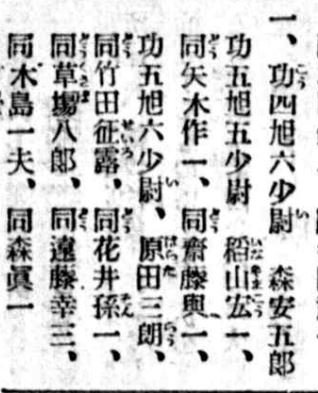 一、功四旭六少尉 森安五郎
功五旭五少尉 稻山宏一、
同矢木作一、同齋藤與一、
功五旭六少尉、原田三朗、
同竹田征露、同花井孫一、
同草場八郎、同遠藤幸三、
同木島一夫、同森眞一